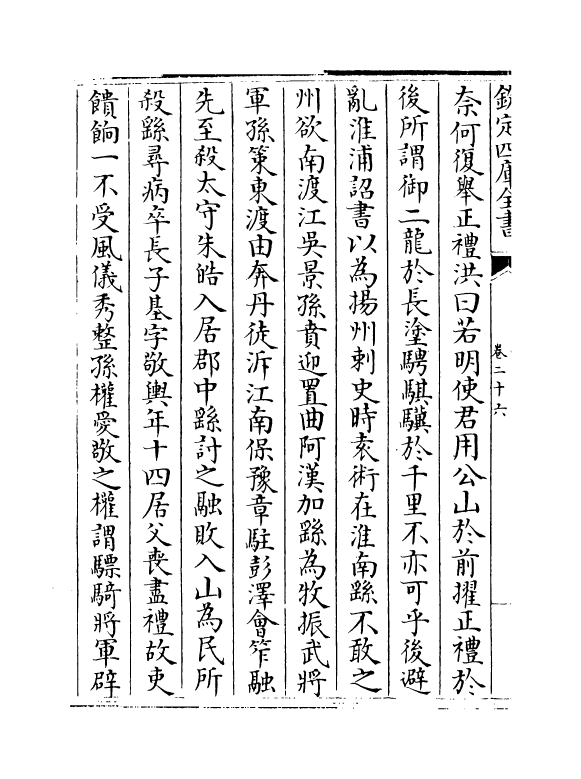 欽定四庫全書
卷二十六
奈何復舉正禮洪曰若明使君用公山於前擢正禮於
後所謂御二龍於長塗騁騏驥於千里不亦可乎後避
亂淮浦詔書以為揚州刺史時袁術在淮南繇不敢之
州欲南渡江吳景孫賁迎置曲阿漢加繇為牧振武將
軍孫策東渡由奔丹徒泝江南保豫章駐彭澤會笮融
先至殺太守朱皓入居郡中繇討之融敗入山為民所
殺繇尋病卒長子基字敬輿年十四居父喪盡禮故吏
饋餉一不受風儀秀整孫權愛敬之權謂驃騎將軍辟